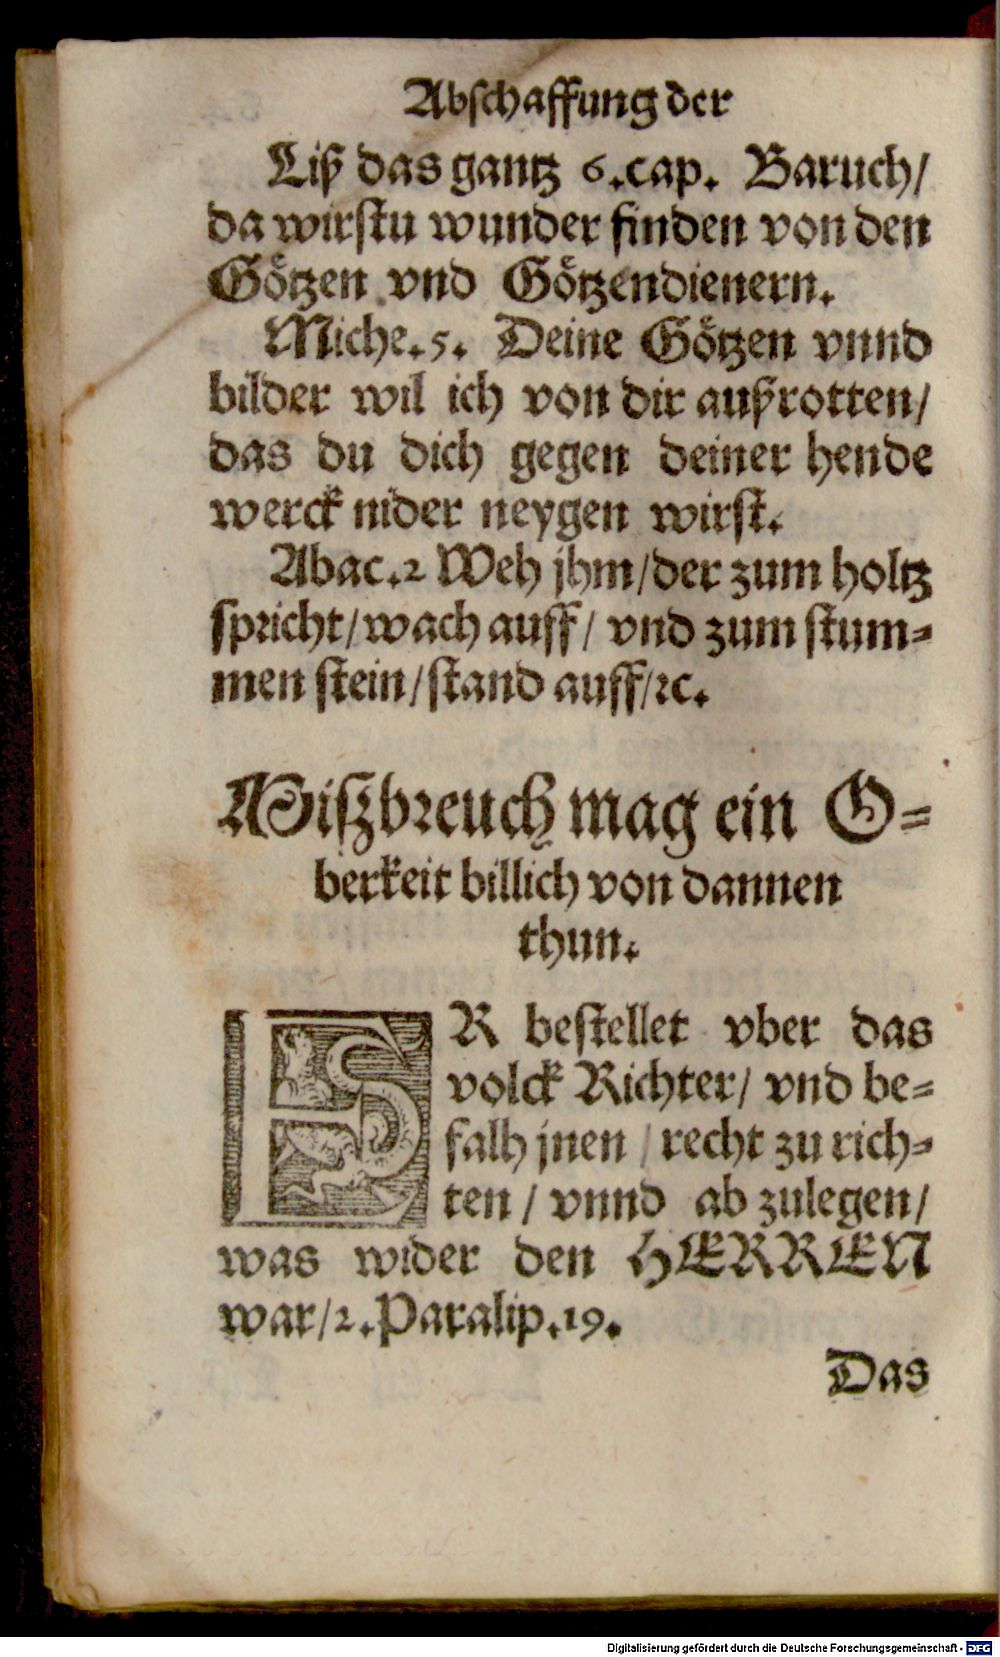 Abschaffung der
Liß das gantz 6. cap. Baruch/
da wirstu wunder finden von den
Götzen vnd Götzendienern.
Miche. 5. Deine Götzen vnnd
bilder wil ich von dir außrotten/
das du dich gegen deiner hende
werck nider neygen wirst.
Abac. 2 Weh jhm/ der zum holtz
spricht/ wach auff/ vnd zum stum-
men stein/ stand auff/ ꝛc.
Miszbreuch mag ein O-
berkeit billich von dannen
thun.
ER bestellet vber das
volck Richter/ vnd be-
falh jnen / recht zu rich-
ten / vnnd ab zulegen/
was wider den HERREN
war/ 2. Paralip. 19.
Das
Digitalisierung gefördert durch die Deutsche Forschungsgemeinschaft - DFG